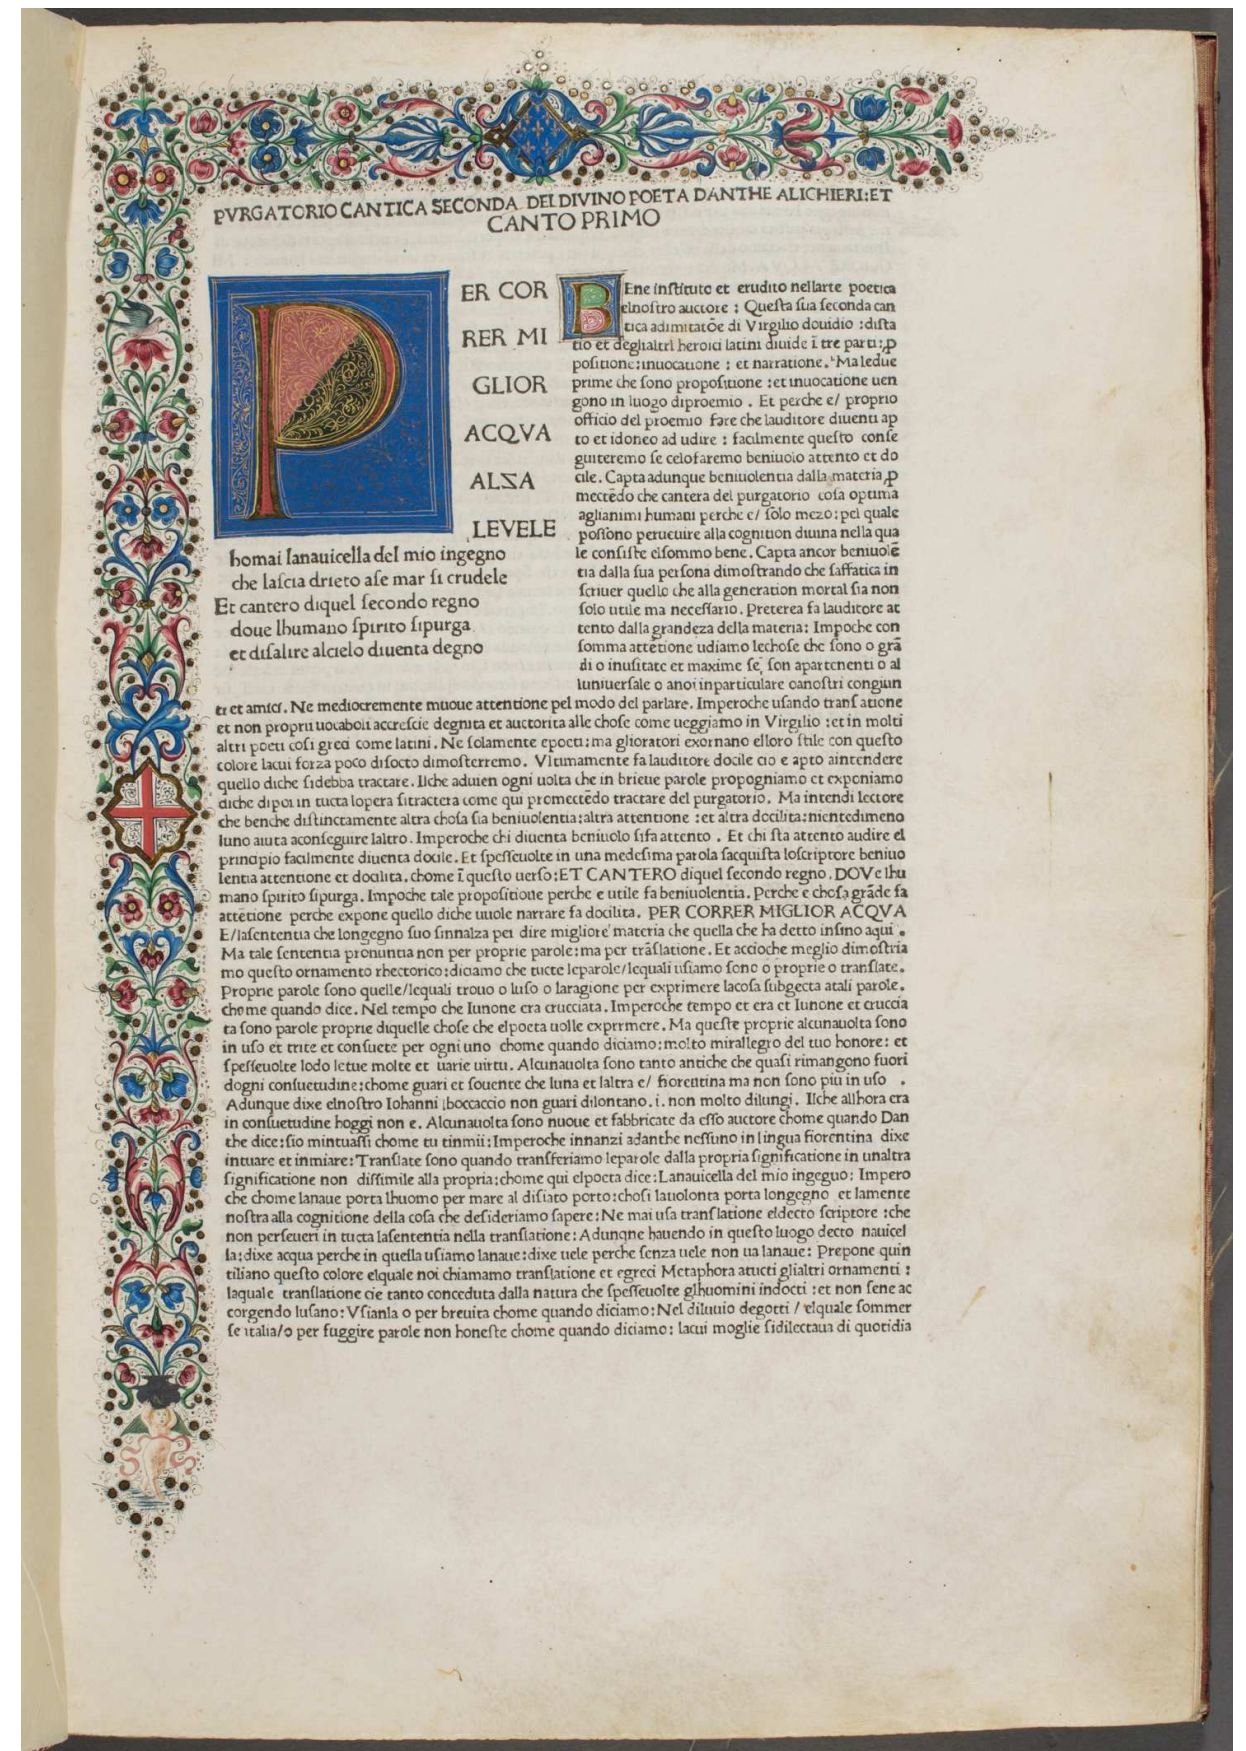 PVRGATORIO CANTICA SECONDA DEL DIVINO POETA DANTHE ALICHIERI:ET
CANTO PRIMO
PER COR
RER MI
GLIOR
ACQVA
ALZA
LEVELE
homai lanauicella del mio ingegno
che laſcia drieto aſe mar ſi crudele
Et cantero diquel ſecondo regno
doue lhumano ſpirito ſipurga
et diſalire alcielo diuenta degno
BEne inſtituto et erudito nellarte poetica
elnoſtro auctore : Queſta ſua ſeconda can
tica adimitatõe di Virgilio douidio :diſta
tio et deglialtri heroici latini diuide ĩ tre parti:ꝓ
poſitione:inuocatione : et narratione. Maledue
prime che ſono propoſitione :et inuocatione uen
gono in luogo diproemio . Et perche e/ proprio
officio del proemio fare che lauditore diuenti ap
to et idoneo ad udire : facilmente queſto conſe
guiteremo ſe celofaremo beniuolo attento et do
cile. Capta adunque beniuolentia dalla materia ꝓ
mectẽdo che cantera del purgatorio coſa optima
aglianimi humani perche e/ ſolo mezo:pel quale
poſſono peruenire alla cognition diuina nella qua
le conſiſte elſommo bene. Capta ancor beniuolẽ
tia dalla ſua perſona dimoſtrando che ſaffatica in
ſcriuer quello che alla generation mortal ſia non
ſolo utile ma neceſſario. Preterea fa lauditore at
tento dalla grandeza della materia: Impoche con
ſomma attẽtione udiamo lechoſe che ſono o grã
di o inuſitate et maxime ſe, ſon apartenenti o al
luniuerſale o anoi inparticulare oanoſtri congiun
ti et amici. Ne mediocremente muoue attentione pel modo del parlare. Imperoche uſando tranſ atione
et non proprii uocaboli accreſcie degnita et auctorita alle choſe come ueggiamo in Virgilio :et in molti
altri poeti coſi greci come latini. Ne ſolamente epoeti:ma glioratori exornano elloro ſtile con queſto
colore lacui forza poco diſocto dimoſterremo. Vltimamente fa lauditore docile cio e apto aintendere
quello diche ſidebba tractare. Ilche aduien ogni uolta che in brieue parole propogniamo et exponiamo
diche dipoi in tucta lopera ſitractera come qui promectẽdo tractare del purgatorio. Ma intendi lectore
che benche diſtinctamente altra choſa ſia beniuolentia:altra attentione :et altra docilita:nientedimeno
luno aiuta aconſeguire laltro. Imperoche chi diuenta beniuolo ſifa attento . Et chi ſta attento audire el
principio facilmente diuenta docile. Et ſpeſſeuolte in una medeſima parola ſacquiſta loſcriptore beniuo
lentia attentione et docilita. chome ĩ queſto uerſo:ET CANTERO diquel ſecondo regno. DOVe lhu
mano ſpirito ſipurga. Impoche tale propoſitione perche e utile fa beniuolentia. Perche e choſa grãde fa
attẽtione perche expone quello diche uuole narrare fa docilita. PER CORRER MIGLIOR ACQVA
E/laſententia che longegno ſuo ſinnalza per dire migliore materia che quella che ha detto inſino aqui .
Ma tale ſententia pronuntia non per proprie parole:ma per trãſlatione. Et accioche meglio dimoſtria
mo queſto ornamento rhectorico:diciamo che tucte leparole/lequali uſiamo ſono o proprie o tranſlate.
Proprie parole ſono quelle/lequali trouo o luſo o laragione per exprimere lacoſa ſubgecta atali parole.
chome quando dice. Nel tempo che Iunone era crucciata. Imperoche tempo et era et Iunone et cruccia
ta ſono parole proprie diquelle choſe che elpoeta uolle exprimere. Ma queſte proprie alcunauolta ſono
in uſo et trite et conſuete per ogni uno chome quando diciamo:molto mirallegro del tuo honore: et
ſpeſſeuolte lodo letue molte et uarie uirtu. Alcunauolta ſono tanto antiche che quaſi rimangono fuori
dogni conſuetudine:chome guari et ſouente che luna et laltra e/ fiorentina ma non ſono piu in uſo .
Adunque dixe elnoſtro Iohanni boccaccio non guari dilontano. i. non molto dilungi. Ilche allhora era
in conſuetudine hoggi non e. Alcunauolta ſono nuoue et fabbricate da eſſo auctore chome quando Dan
the dice:ſio mintuaſſi chome tu tinmii:Imperoche innanzi adanthe neſſuno in lingua fiorentina dixe
intuare et inmiare:Tranſlate ſono quando tranſferiamo leparole dalla propria ſignificatione in unaltra
ſignificatione non diſſimile alla propria:chome qui elpoeta dice:Lanauicella del mio ingeguo: Impero
che chome lanaue porta lhuomo per mare al diſiato porto:choſi lauolonta porta longegno et lamente
noſtra alla cognitione della coſa che deſideriamo ſapere: Ne mai uſa tranſlatione eldecto ſcriptore :che
non perſeueri in tucta laſententia nella tranſlatione: Adunqne hauendo in queſto luogo decto nauicel
la:dixe acqua perche in quella uſiamo lanaue:dixe uele perche ſenza uele non ua lanaue: Prepone quin
tiliano queſto colore elquale noi chiamamo tranſlatione et egreci Metaphora atucti glialtri ornamenti :
laquale tranſlatione cie tanto conceduta dalla natura che ſpeſſeuolte glhuomini indocti :et non ſene ac
corgendo luſano: Vſianla o per breuita chome quando diciamo: Nel diluuio degotti / elquale ſommer
ſe italia/o per fuggire parole non honeſte chome quando diciamo: lacui moglie ſidilectaua di quotidia